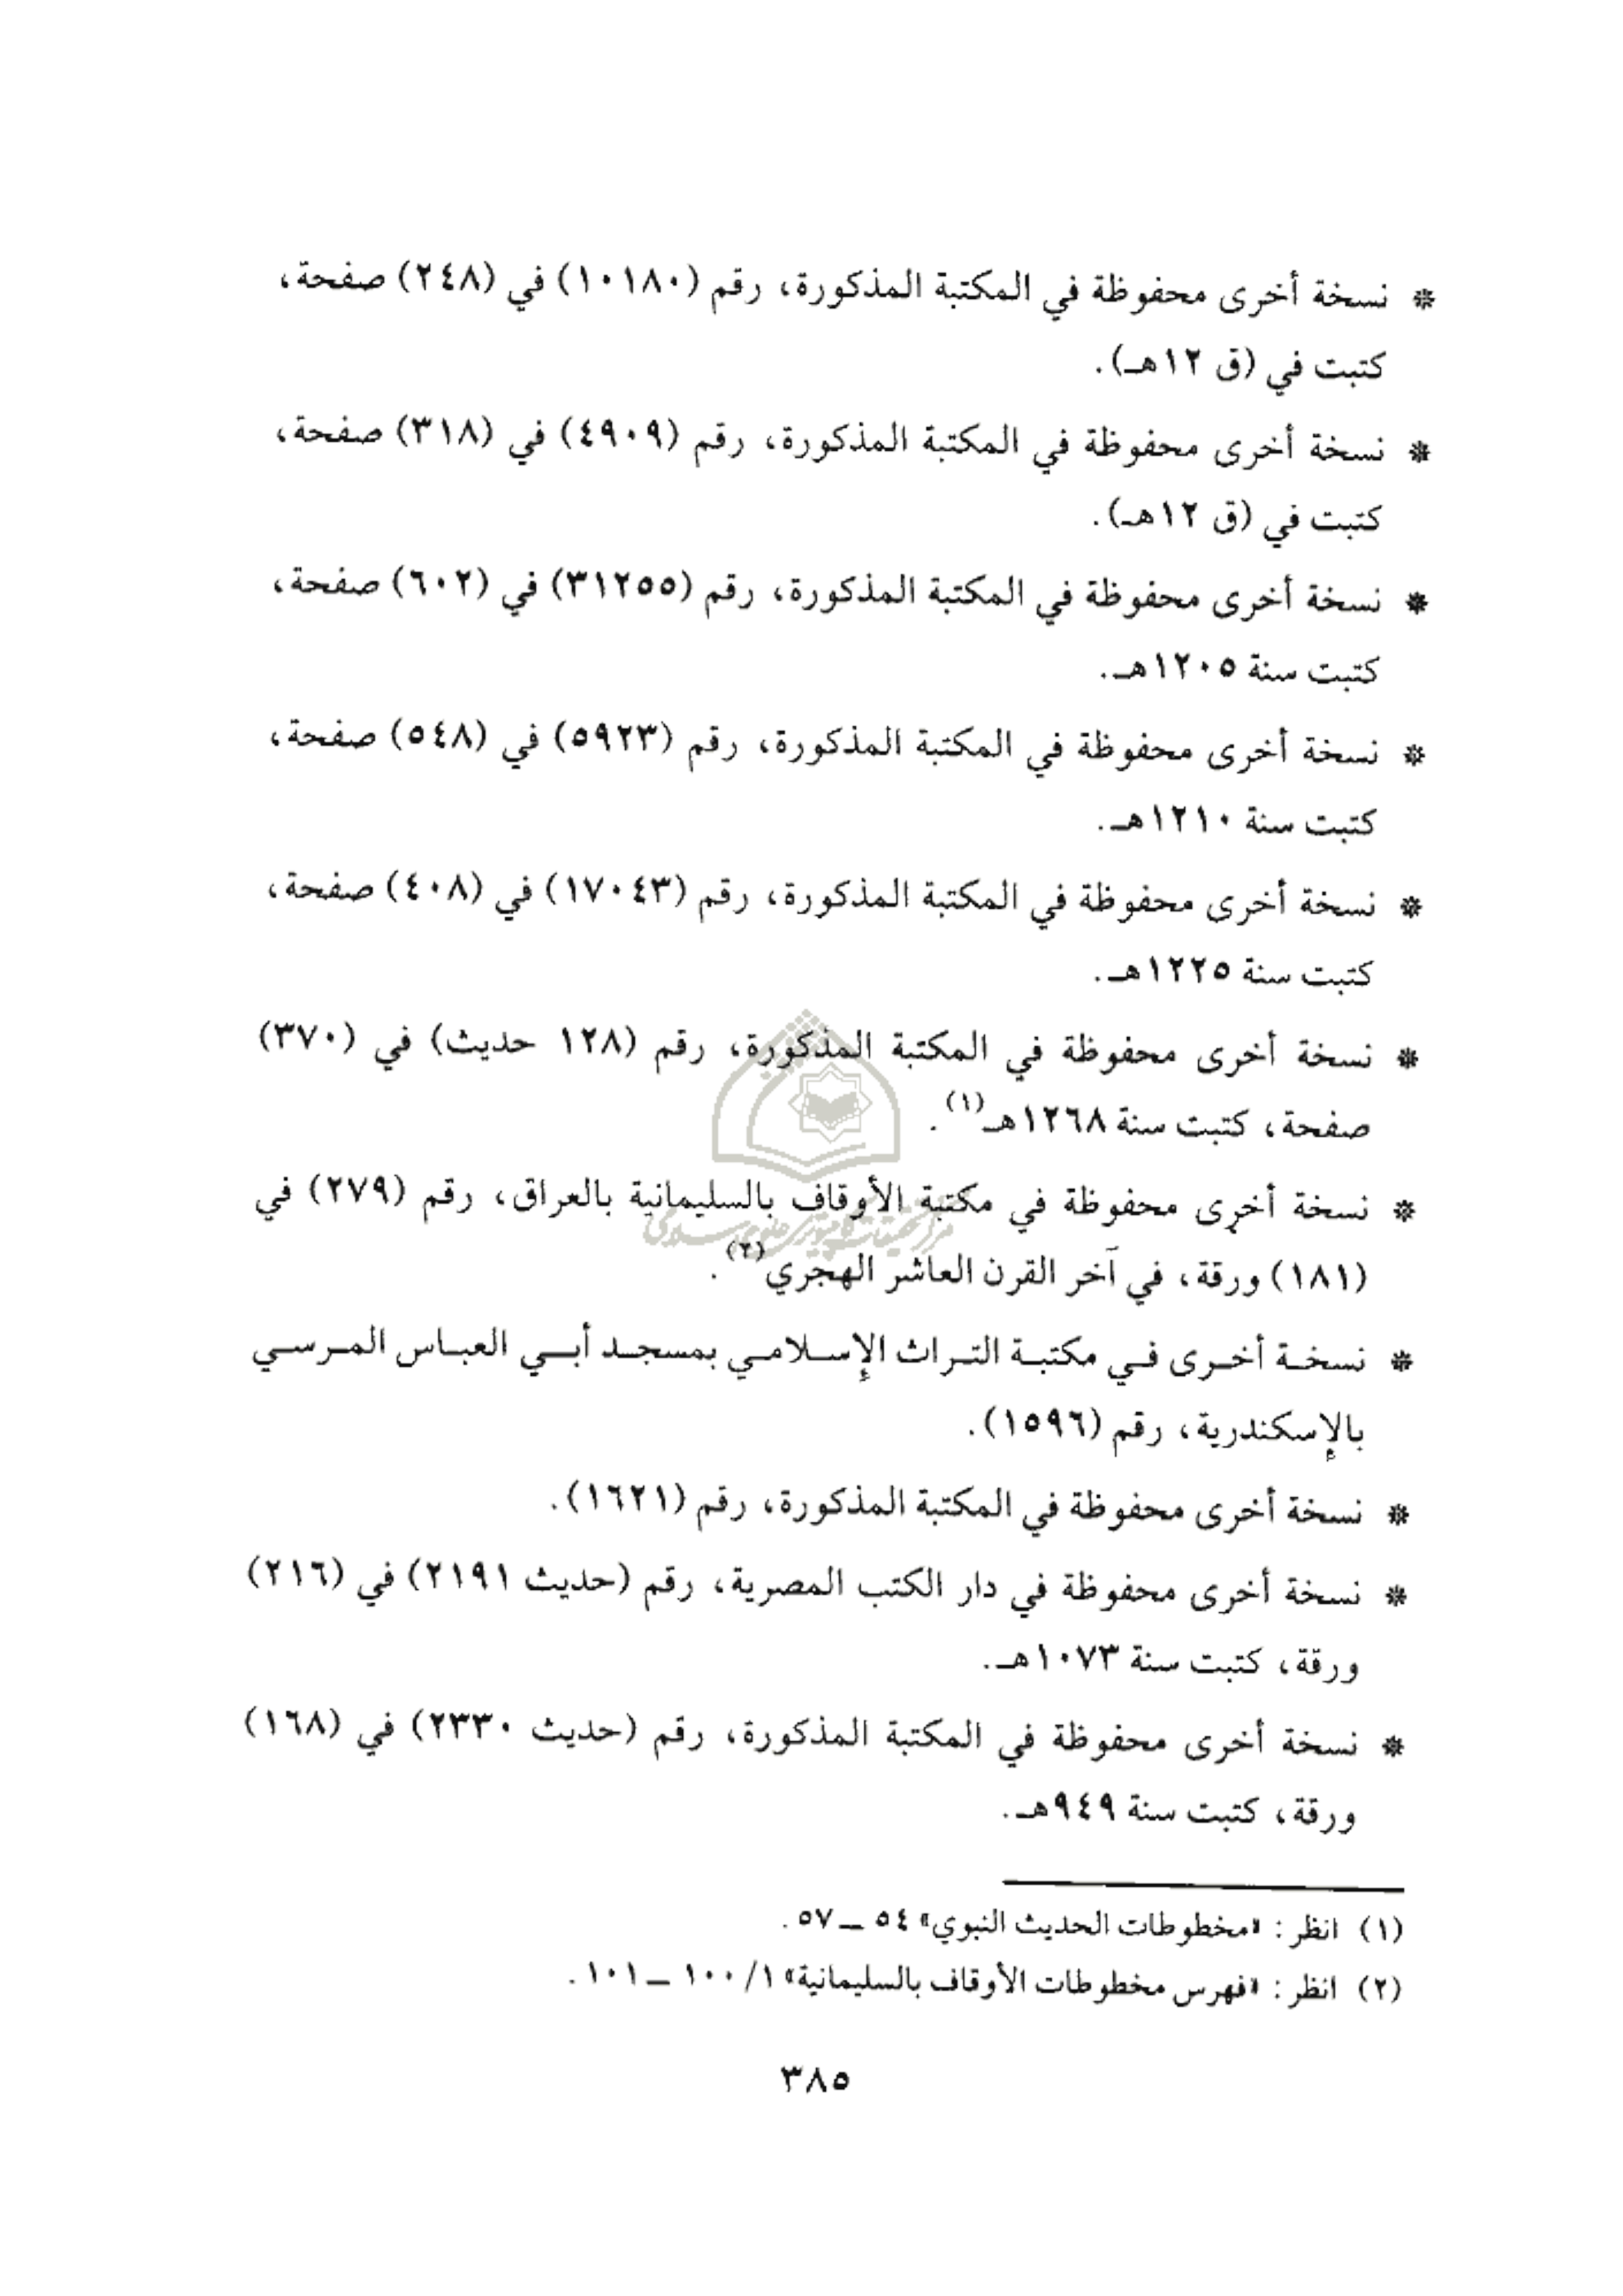 * نسخة أخرى محفوظة في المكتبة المذكورة، رقم (١٠١٨٠) في (٢٤٨) صفحة،
كتبت في (ق ١٢هـ).
* نسخة أخرى محفوظة في المكتبة المذكورة، رقم (٤٩٠٩) في (٣١٨) صفحة،
كتبت في (ق ١٢هـ).
* نسخة أخرى محفوظة في المكتبة المذكورة، رقم (٣١٢٥٥) في (٦٠٢) صفحة،
كتبت سنة ١٢٠٥هـ.
* نسخة أخرى محفوظة في المكتبة المذكورة، رقم (٥٩٢٣) في (٥٤٨) صفحة،
كتبت سنة ١٢١٠هـ.
* نسخة أخرى محفوظة في المكتبة المذكورة، رقم (١٧٠٤٣) في (٤٠٨) صفحة،
كتبت سنة ١٢٢٥هـ.
* نسخة أخرى محفوظة في المكتبة المذكورة، رقم (١٢٨ حديث) في (٣٧٠)
صفحة، كتبت سنة ١٢٦٨هـ(١).
* نسخة أخرى محفوظة في مكتبة الأوقاف بالسليمانية بالعراق، رقم (٢٧٩) في
مركز تحقيقات كامپيوتری علوم اسلامی
(١٨١) ورقة، في آخر القرن العاشر الهجري(٢).
* نسخة أخرى في مكتبة التراث الإسلامي بمسجد أبي العباس المرسي
بالإسكندرية، رقم (١٥٩٦).
* نسخة أخرى محفوظة في المكتبة المذكورة، رقم (١٦٢١).
* نسخة أخرى محفوظة في دار الكتب المصرية، رقم (حديث ٢١٩١) في (٢١٦)
ورقة، كتبت سنة ١٠٧٣هـ.
* نسخة أخرى محفوظة في المكتبة المذكورة، رقم (حديث ٢٣٣٠) في (١٦٨)
ورقة، كتبت سنة ٩٤٩هـ.
(١) انظر: «مخطوطات الحديث النبوي» ٥٤ ــ ٥٧.
(٢) انظر: «فهرس مخطوطات الأوقاف بالسليمانية» ١/ ١٠٠ ــ ١٠١.
٣٨٥